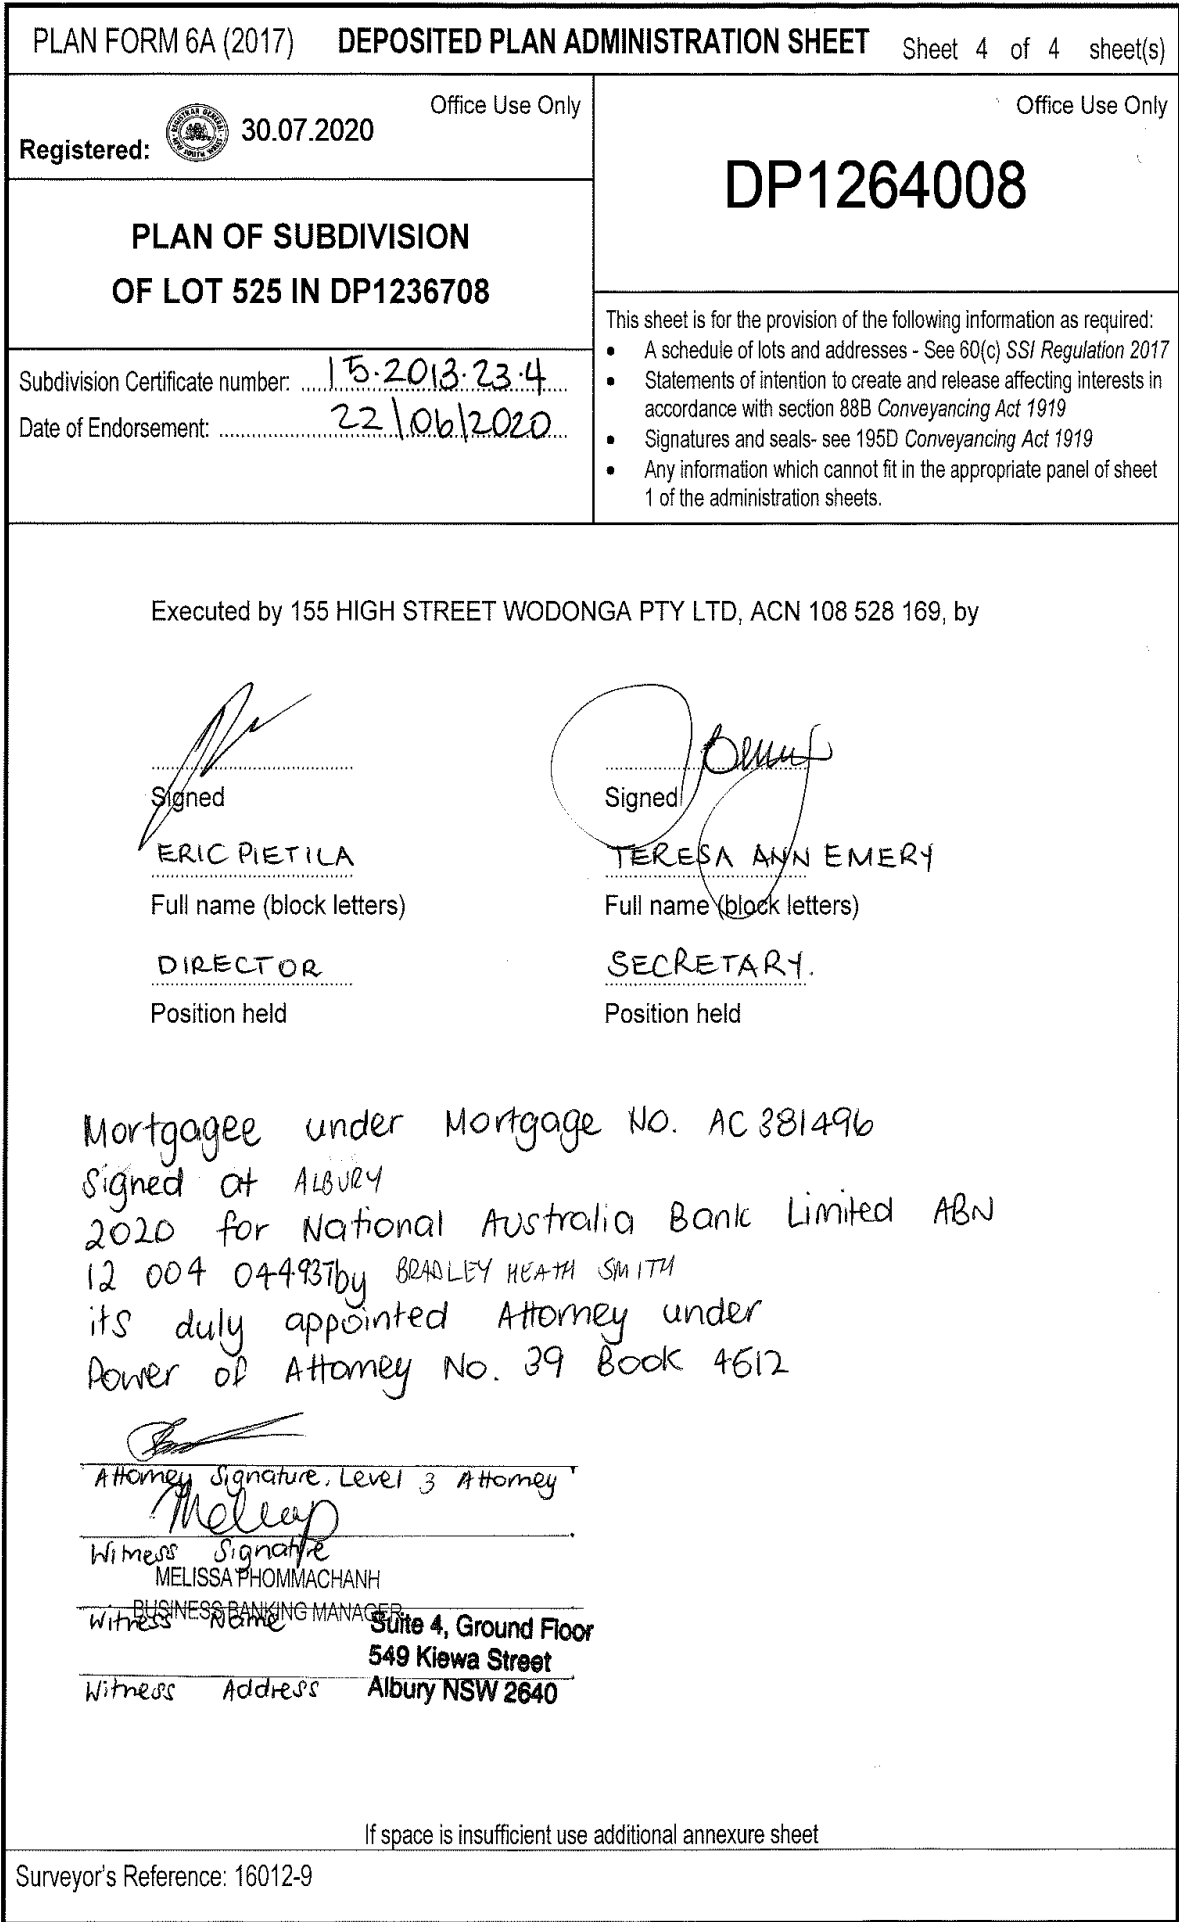 PLAN FORM 6A (2017) DEPOSITED PLAN ADMINISTRATION SHEET Sheet 4 of 4 sheet(s)
Office Use Only
Registered: 30.07.2020
PLAN OF SUBDIVISION
OF LOT 525 IN DP1236708
Subdivision Certificate number: 15.2013.23.4
Date of Endorsement: 22/06/2020
Office Use Only
DP1264008
This sheet is for the provision of the following information as required:
• A schedule of lots and addresses - See 60(c) SSI Regulation 2017
• Statements of intention to create and release affecting interests in
accordance with section 88B Conveyancing Act 1919
• Signatures and seals- see 195D Conveyancing Act 1919
• Any information which cannot fit in the appropriate panel of sheet
1 of the administration sheets.
Executed by 155 HIGH STREET WODONGA PTY LTD, ACN 108 528 169, by
Signed Signed
ERIC PIETILA TERESA ANN EMERY
Full name (block letters) Full name (block letters)
DIRECTOR SECRETARY.
Position held Position held
Mortgagee under Mortgage No. AC 381496
Signed at ALBURY
2020 for National Australia Bank Limited ABN
12 004 044937 by BRADLEY HEATH SMITH
its duly appointed Attorney under
Power of Attorney No. 39 Book 4612
Attorney Signature, Level 3 Attorney
Witness Signature
MELISSA PHOMMACHANH
BUSINESS BANKING MANAGER
Witness Name Suite 4, Ground Floor
549 Kiewa Street
Witness Address Albury NSW 2640
If space is insufficient use additional annexure sheet
Surveyor's Reference: 16012-9